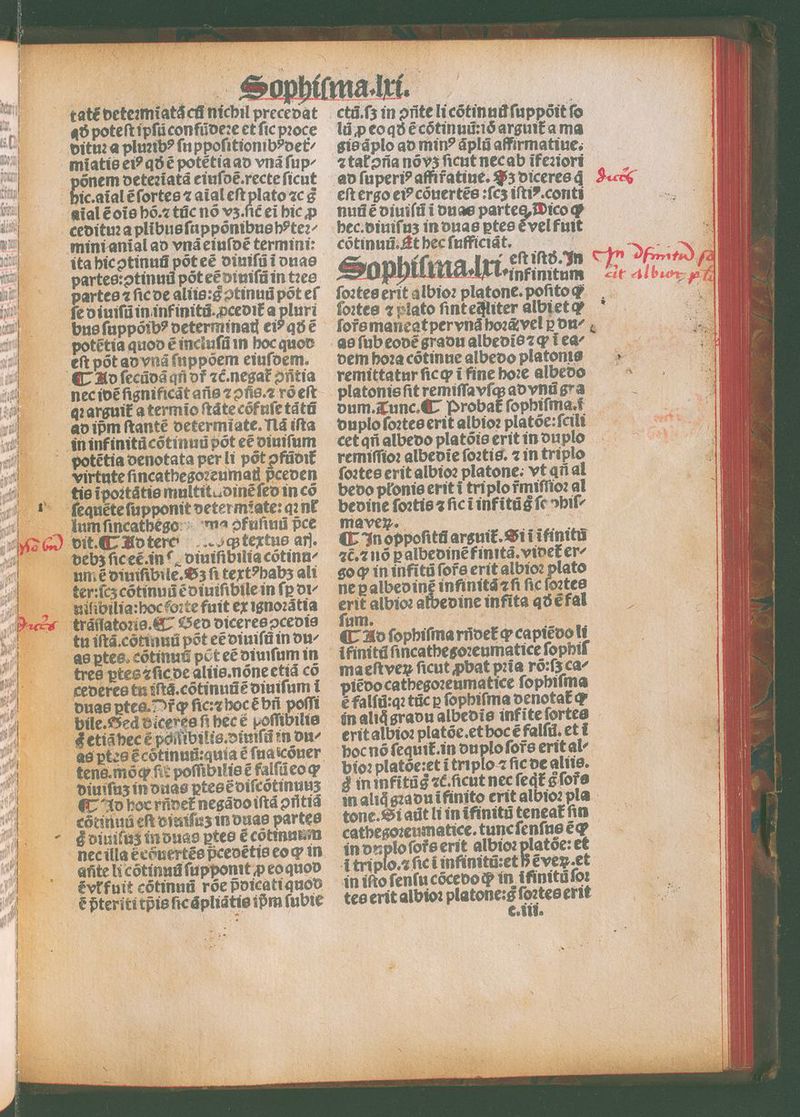 Sophisma.lxi.
tatē determiatā cū nichil precedat
qđ potest ipsū confūdere et sic proce
ditur a pluribꝰ suppositionibꝰ det⸗
miatis eiꝰ qđ ē potētia ad vnā sup⸗
pōnem deteriatā eiusdē. recte sicut
hic. aīal ē sortes ⁊ aīal est plato ⁊c g̊
aīal ē oīs hō. ⁊ tūc nō vꝫ. sic ei hic ꝓ
ceditur a plibus suppōnibus hꝰ ter⸗
mini anīal ad vnā eiusdē termini:
ita hic ↄtinuū pōt eē diuisū ī duas
partes: ↄtinuū pōt eē diuisū in tres
partes ⁊ sic de aliis: g̊ ↄtinuū pōt es
se diuisū in infinitū. ꝓcedit a pluri
bus suppōibꝰ determinatī eiꝰ qđ ē
potētia quod ē inclusū in hoc quod
est pōt ad vnā suppōem eiusdem.
¶ Ad secūdā qn̄ dr̄ ⁊c̄. negat ↄn̄tia
nec idē significāt an̄s ⁊ ↄn̄s. ⁊ rō est
qr arguit a termīo stāte cōfuse tātū
ad ip̄m stantē determiate. Nā ista
in infinitū cōtinuū pōt eē diuisum
potētia denotata per li pōt ↄfūdit
virtute sincathegoreumatī p̄ceden
tis ī portātis multitudinē sed in cō
sequēte supponit determīate: qr nl̄
lum sincathego ma ↄfusiuū p̄ce
dit. ¶ Ad terc ꝙ textus ar̄.
debꝫ sic eē. in diuisibilia cōtinu⸗
um ē diuisibile. Sꝫ si textꝰ habꝫ ali
ter: scꝫ cōtinuū ē diuisibile in sp̄ di⸗
uisibilia: hoc forte fuit ex ignorātia
trāslatoris. ¶ Sed diceres ↄcedis
tu istā. cōtinuū pōt eē diuisū in du⸗
as ptes. cōtinuū pōt eē diuisum in
tres ptes ⁊ sic de aliis. nōne etiā cō
cederes tu istā. cōtinuū ē diuisum ī
duas ptes. Dr̄ ꝙ sic: ⁊ hoc ē bn̄ possi
bile. Sed diceres si hec ē possibilis
g̊ etiā hec ē possibilis. diuisū in du⸗
as ptes ē cōtinuū: quia ē sua cōuer
tens. mō ꝙ sit possibilis ē falsū eo ꝙ
diuisuꝫ in duas ptes ē discōtinuuꝫ
¶ Ad hoc rn̄det negādo istā ↄn̄tiā
cōtinuū est diuisuꝫ in duas partes
g̊ diuisuꝫ in duas ptes ē cōtinuum
nec illa ē cōuertēs p̄cedētis eo ꝙ in
an̄te li cōtinuū supponit ꝓ eo quod
ē vl̄ fuit cōtinuū rōe p̄dicati quod
ē p̄teriti tp̄is sic āpliātis ip̄m subie
ctū. sꝫ in ↄn̄te li cōtinuū suppōit so
lū ꝓ eo qđ ē cōtinuū: iō arguit a ma
gis āplo ad minꝰ āplū affirmatiue.
⁊ tal̄ ↄn̄a nō vꝫ sicut nec ab īferiori
ad superiꝰ affirmatiue. Sꝫ diceres q̄
est ergo eiꝰ cōuertēs: scꝫ istiꝰ. conti
nuū ē diuisū ī duas partes. Dico ꝙ
hec. diuisuꝫ in duas ptes ē vel fuit
cōtinuū. Et hec sufficiāt.
Sophisma.lxi. est istđ. In
infinitum
sortes erit albior platone. posito ꝙ
sortes ⁊ plato sint eq̄liter albi et ꝙ
sor̄s maneat per vnā horā vel p du⸗
as sub eodē gradu albedīs ⁊ ꝙ ī ea⸗
dem hora cōtinue albedo platonis
remittatur sic ꝙ ī fine hore albedo
platonis sit remissa vsqꝫ ad vnū gra
dum. Tunc. ¶ Probat sophisma. s̄
duplo sortes erit albior platōe: scili
cet qn̄ albedo platōis erit in duplo
remissior albedīe sortis. ⁊ in triplo
sortes erit albior platone: vt qn̄ al
bedo pl̄onis erit ī triplo r̄missior al
bedine sortis ⁊ sic ī infitū g̊ sophis⸗
ma veꝝ.
¶ In oppositū arguit. Si ī īfinitū
⁊c̄. ⁊ nō p albedinē finitā. videt er⸗
go ꝙ in infitū sor̄s erit albior plato
ne p albedinē infinitā ⁊ si sic sortes
erit albior albedine infita qđ ē fal
sum.
¶ Ad sophisma rn̄det ꝙ capiēdo li
īfinitū sincathegoreumatice sophis
ma est veꝝ sicut ꝓbat pria rō: sꝫ ca⸗
piēdo cathegoreumatice sophisma
ē falsū: qr tūc p sophisma denotat ꝙ
in aliq̄ gradu albedīs infite sortes
erit albior platōe. et hoc ē falsū. et ī
hoc nō sequit. in duplo sor̄s erit al⸗
bior platōe: et ī triplo ⁊ sic de aliis.
g̊ in infitū g̊ ⁊c̄. sicut nec seqt̄ g̊ sor̄s
in aliq̄ gradu īfinito erit albior pla
tone. Si aūt li in īfinitū teneat sin
cathegoreumatice. tunc sensus ē ꝙ
in duplo sor̄s erit albior platōe: et
ī triplo. ⁊ sic ī infinitū: et h̄ ē veꝝ. et
in isto sensu cōcedo ꝙ in īfinitū sor
tes erit albior platone: g̊ sortes erit
c.iii.